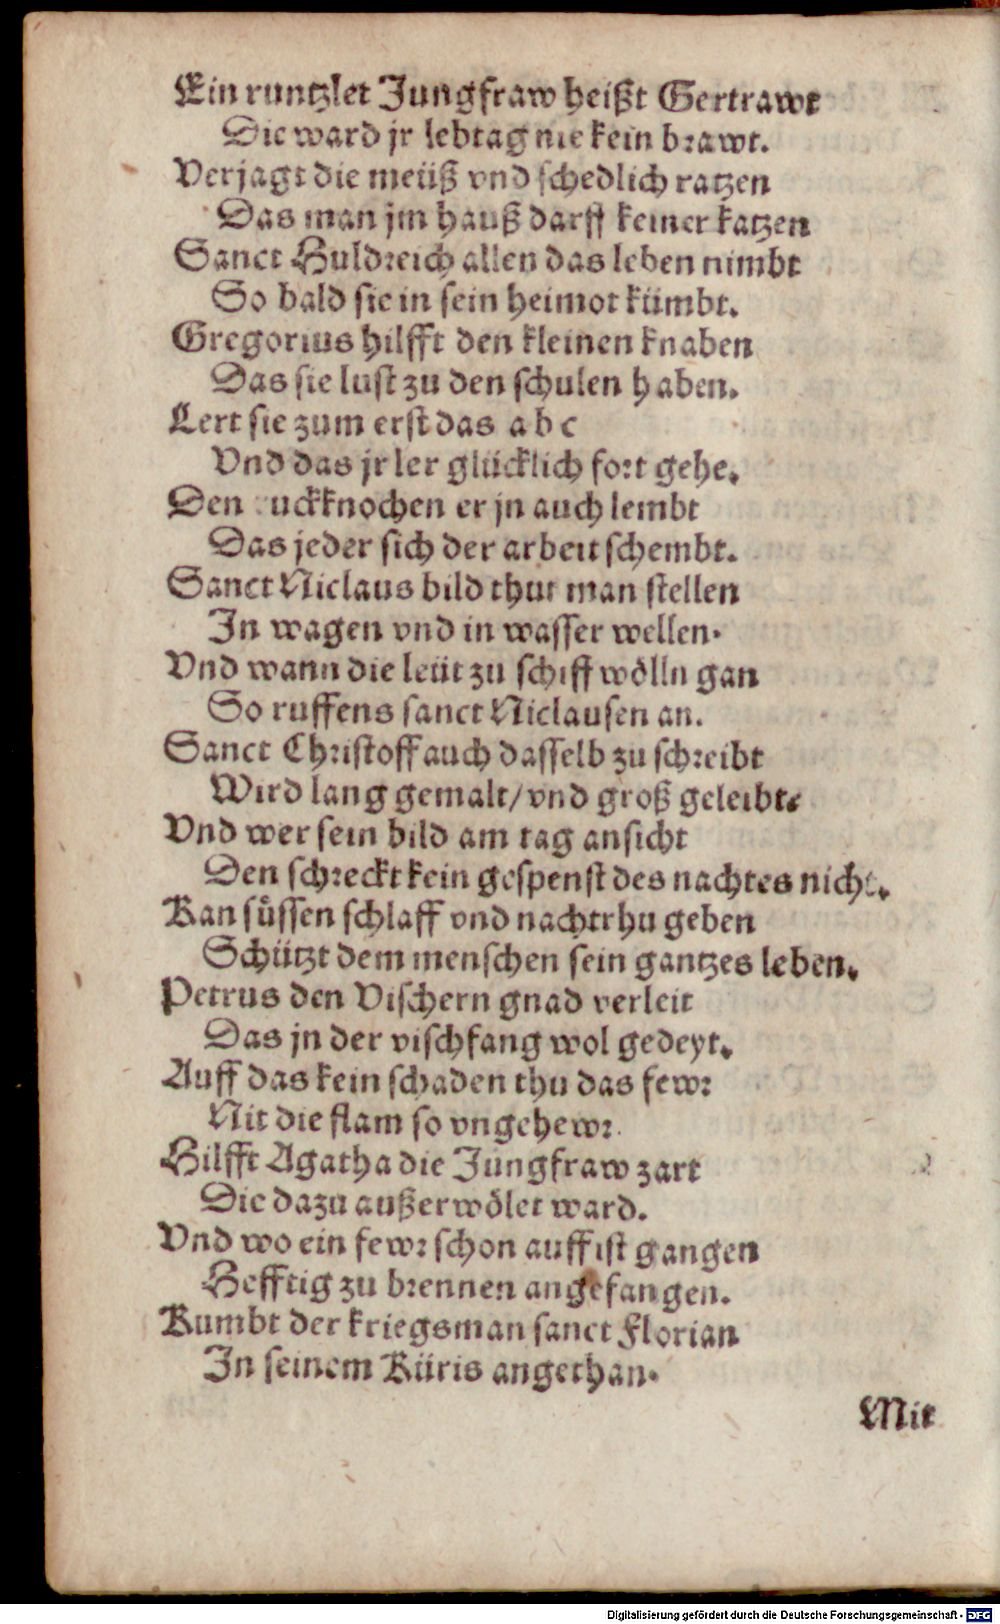 Ein runtzlet Jungfraw heißt Gertrawt
Die ward jr lebtag nie kein brawt.
Verjagt die meüß vnd schedlich ratzen
Das man jm hauß darff keiner katzen
Sanct Huldreich allen das leben nimbt
So bald sie in sein heimot kümbt.
Gregorius hilfft den kleinen knaben
Das sie lust zu den schulen haben.
Lert sie zum erst das a b c
Vnd das jr ler glücklich fort gehe.
Den uckknochen er jn auch lembt
Das jeder sich der arbeit schembt.
Sanct Niclaus bild thut man stellen
In wagen vnd in wasser wellen.
Vnd wann die leüt zu schiff wölln gan
So ruffens sanct Niclausen an.
Sanct Christoff auch dasselb zu schreibt
Wird lang gemalt/ vnd groß geleibt.
Vnd wer sein bild am tag ansicht
Den schreckt kein gespenst des nachtes nicht.
Kan süssen schlaff vnd nachtrhu geben
Schützt dem menschen sein gantzes leben.
Petrus den Vischern gnad verleit
Das jn der vischfang wol gedeyt.
Auff das kein schaden thu das fewr
Nit die flam so vngehewr.
Hilfft Agatha die Jungfraw zart
Die dazu außerwölet ward.
Vnd wo ein fewr schon auff ist gangen
Hefftig zu brennen angefangen.
Kumbt der kriegsman sanct Florian
In seinem Küris angethan.
Mit
Digitalisierung gefördert durch die Deutsche Forschungsgemeinschaft - DFG